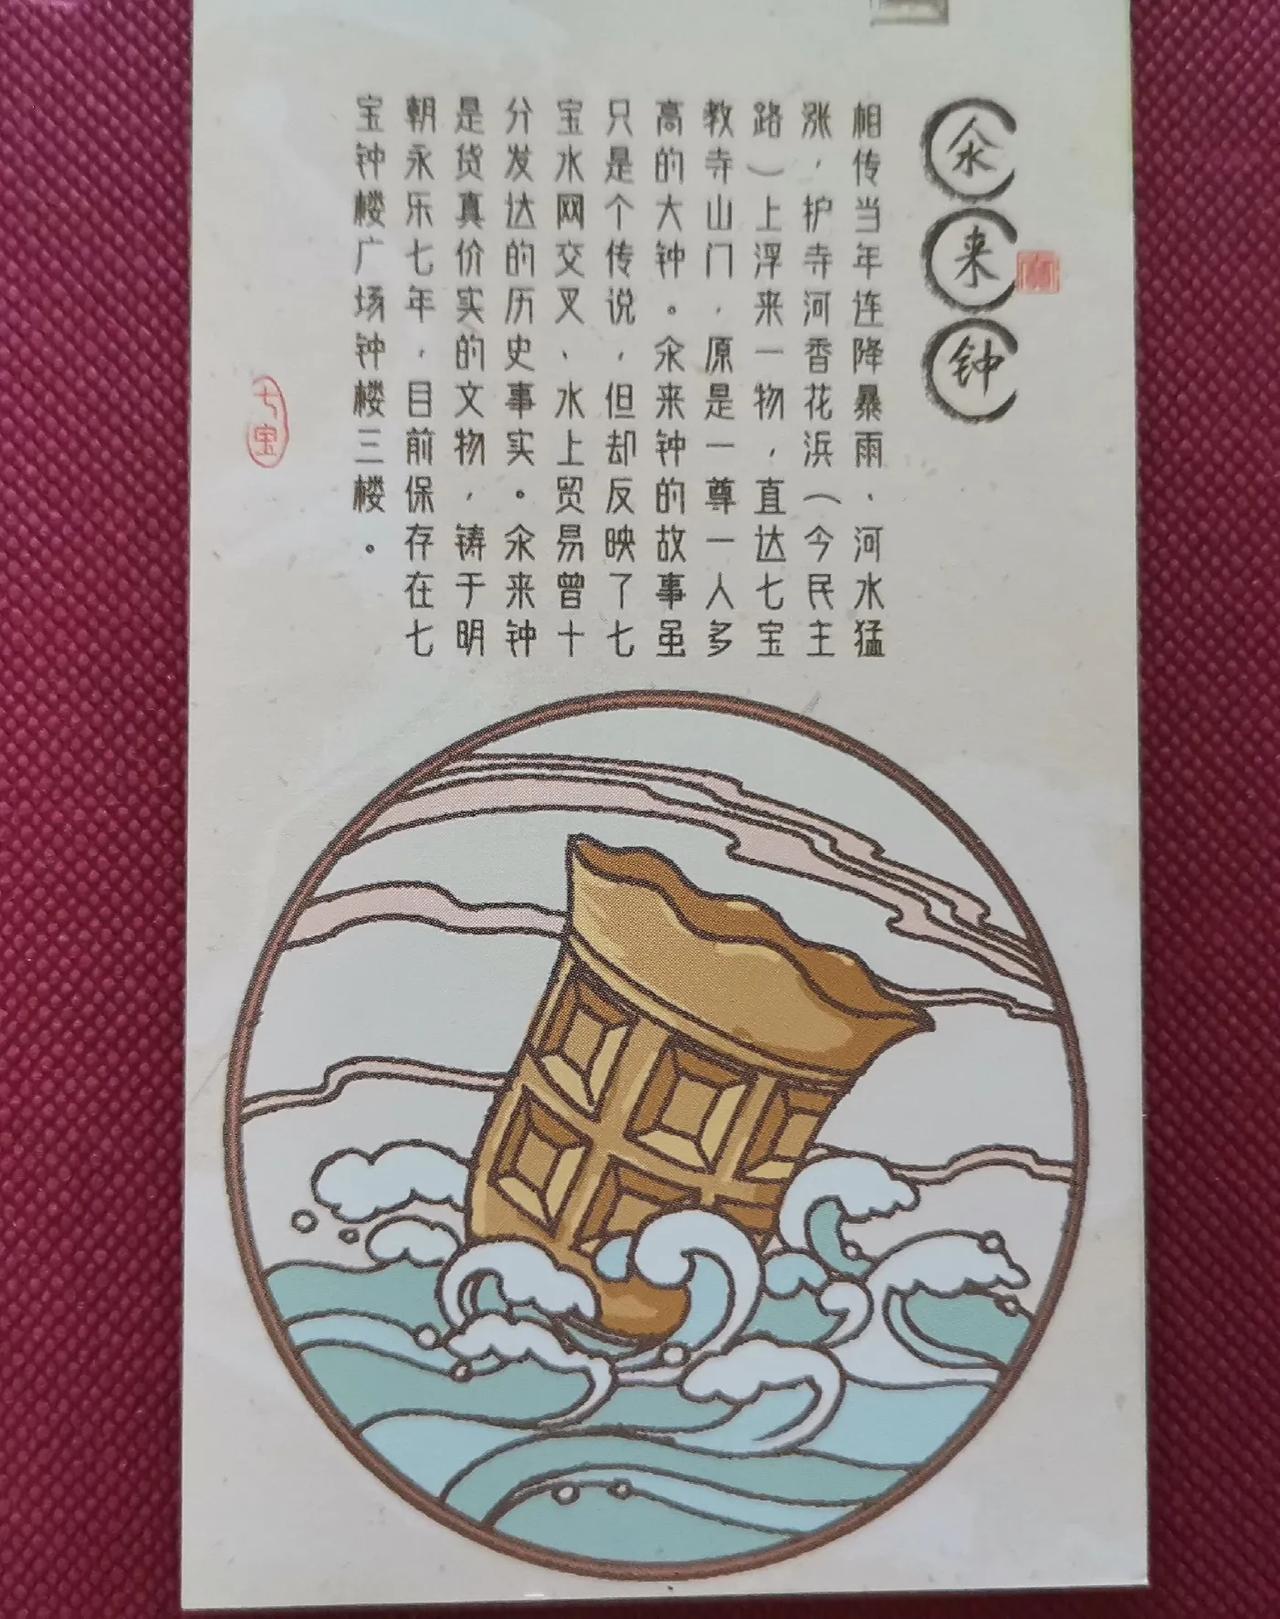 氽来钟
相传当年连降暴雨、河水猛
涨，护寺河香花浜（今民主
路）上浮来一物，直达七宝
教寺山门，原是一尊一人多
高的大钟。氽来钟的故事虽
只是个传说，但却反映了七
宝水网交叉、水上贸易曾十
分发达的历史事实。氽来钟
是货真价实的文物，铸于明
朝永乐七年，目前保存在七
宝钟楼广场钟楼三楼。
七宝